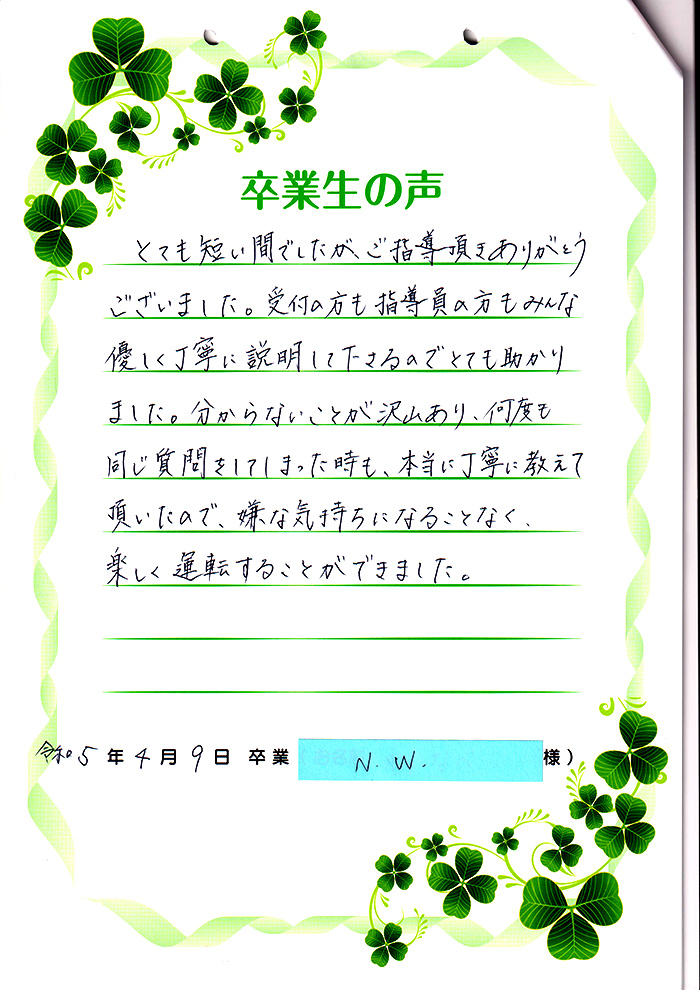 卒業生の声
とても短い間でしたが、ご指導頂きありがとう
ございました。受付の方も指導員の方もみんな
優しく丁寧に説明して下さるのでとても助かり
ました。分からないことが沢山あり、何度も
同じ質問をしてしまった時も、本当に丁寧に教えて
頂いたので、嫌な気持ちになることなく、
楽しく運転することができました。
令和5年4月9日 卒業 N.W. 様）